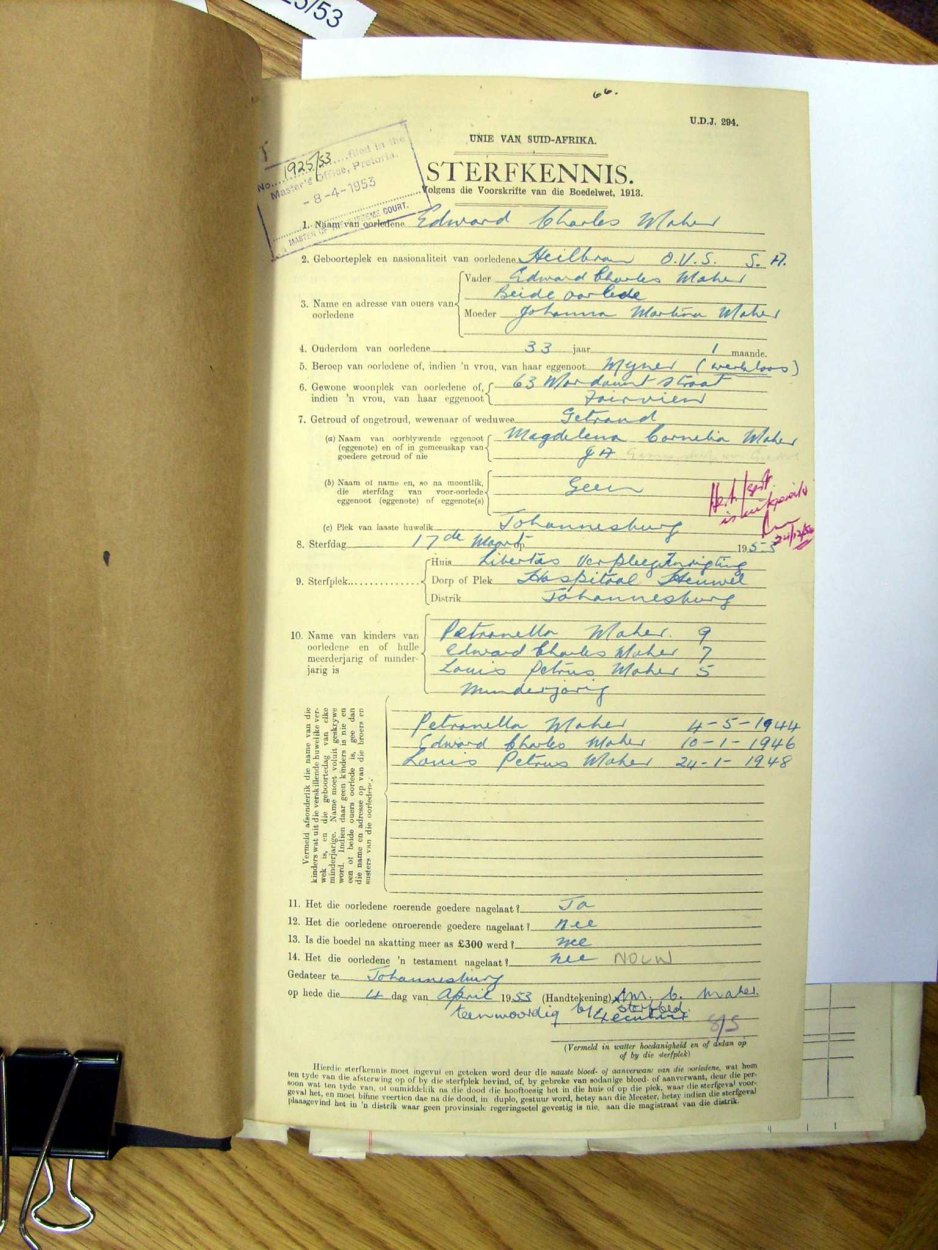 25/53
66.
U.D.J. 294.
UNIE VAN SUID-AFRIKA.
No. 1925/53 filed in the
Master's Office, Pretoria.
-8-4-1953
MASTER OF THE SUPREME COURT.
STERFKENNIS.
Volgens die Voorskrifte van die Boedelwet, 1913.
1. Naam van oorledene Edward Charles Maher
2. Geboorteplek en nasionaliteit van oorledene Heilbron O.V.S. S.A.
3. Name en adresse van ouers van oorledene
Vader Edward Charles Maher
Beide oorlede
Moeder Johanna Martina Maher
4. Ouderdom van oorledene 33 jaar 1 maande.
5. Beroep van oorledene of, indien 'n vrou, van haar eggenoot Myner (werkloos)
6. Gewone woonplek van oorledene of, 63 Mordaunt Straat
indien 'n vrou, van haar eggenoot Fairview
7. Getroud of ongetroud, wewenaar of weduwee Getroud
(a) Naam van oorblywende eggenoot Magdelena Cornelia Maher
(eggenote) en of in gemeenskap van
goedere getroud of nie Ja
(b) Naam of name en, so na moontlik,
die sterfdag van voor-oorlede Geen
eggenoot (eggenote) of eggenote(s)
(c) Plek van laaste huwelik Johannesburg
8. Sterfdag 17de Maart 1953
9. Sterfplek
Huis Libertas Verpleeginrigting
Dorp of Plek Hospitaal Heuwel
Distrik Johannesburg
10. Name van kinders van
oorledene en of hulle
meerderjarig of minder-
jarig is
Petronella Maher. 9
Edward Charles Maher 7
Louis Petrus Maher 5
Minderjarig
Vermeld afsonderlik die name van die
kinders wat uit die verskillende huwelike ver-
wek is, en die geboortedag van elke
minderjarige. Name moet voluit geskrywe
word. Indien daar geen kinders is nie en
een of beide ouers oorlede is, gee dan
die name en adresse op van die broers en
susters van die oorledene.
Petronella Maher 4-5-1944
Edward Charles Maher 10-1-1946
Louis Petrus Maher 24-1-1948
11. Het die oorledene roerende goedere nagelaat? Ja
12. Het die oorledene onroerende goedere nagelaat? Nee
13. Is die boedel na skatting meer as £300 werd? nee
14. Het die oorledene 'n testament nagelaat? nee NOUW
Gedateer te Johannesburg
op hede die 4 dag van April 1953 (Handtekening) M. C. Maher
teenwoordig by sterfbed.
(Vermeld in watter hoedanigheid en of aldan op
of by die sterfplek)
Hierdie sterfkennis moet ingevul en geteken word deur die naaste bloed- of aanverwant van die oorledene, wat hom
ten tyde van die afsterwing op of by die sterfplek bevind, of, by gebreke van sodanige bloed- of aanverwant, deur die per-
soon wat ten tyde van, of onmiddellik na die dood die hooftoesig het in die huis of op die plek, waar die sterfgeval voor-
geval het, en moet binne veertien dae na die dood, in duplo, gestuur word, hetsy aan die Meester, hetsy indien die sterfgeval
plaasgevind het in 'n distrik waar geen provinsiale regeringsetel gevestig is nie, aan die magistraat van die distrik.